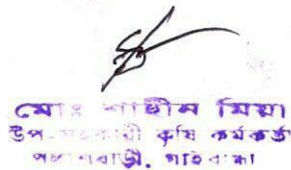 মোঃ শাহীন মিয়া
উপ-সহকারী কৃষি কর্মকর্তা
পলাশবাড়ী, গাইবান্ধা